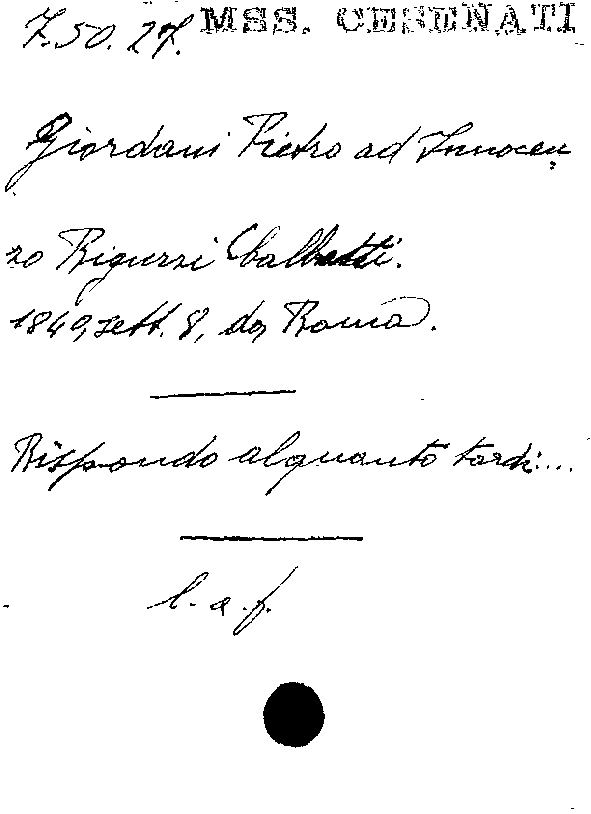 7.50.27. MSS. CESENATI
Giordani Pietro ad Innocen
zo Riguzzi Galbetti.
1849, sett. 8, da Roma.
Rispondo alquanto tardi...
l. a. f.